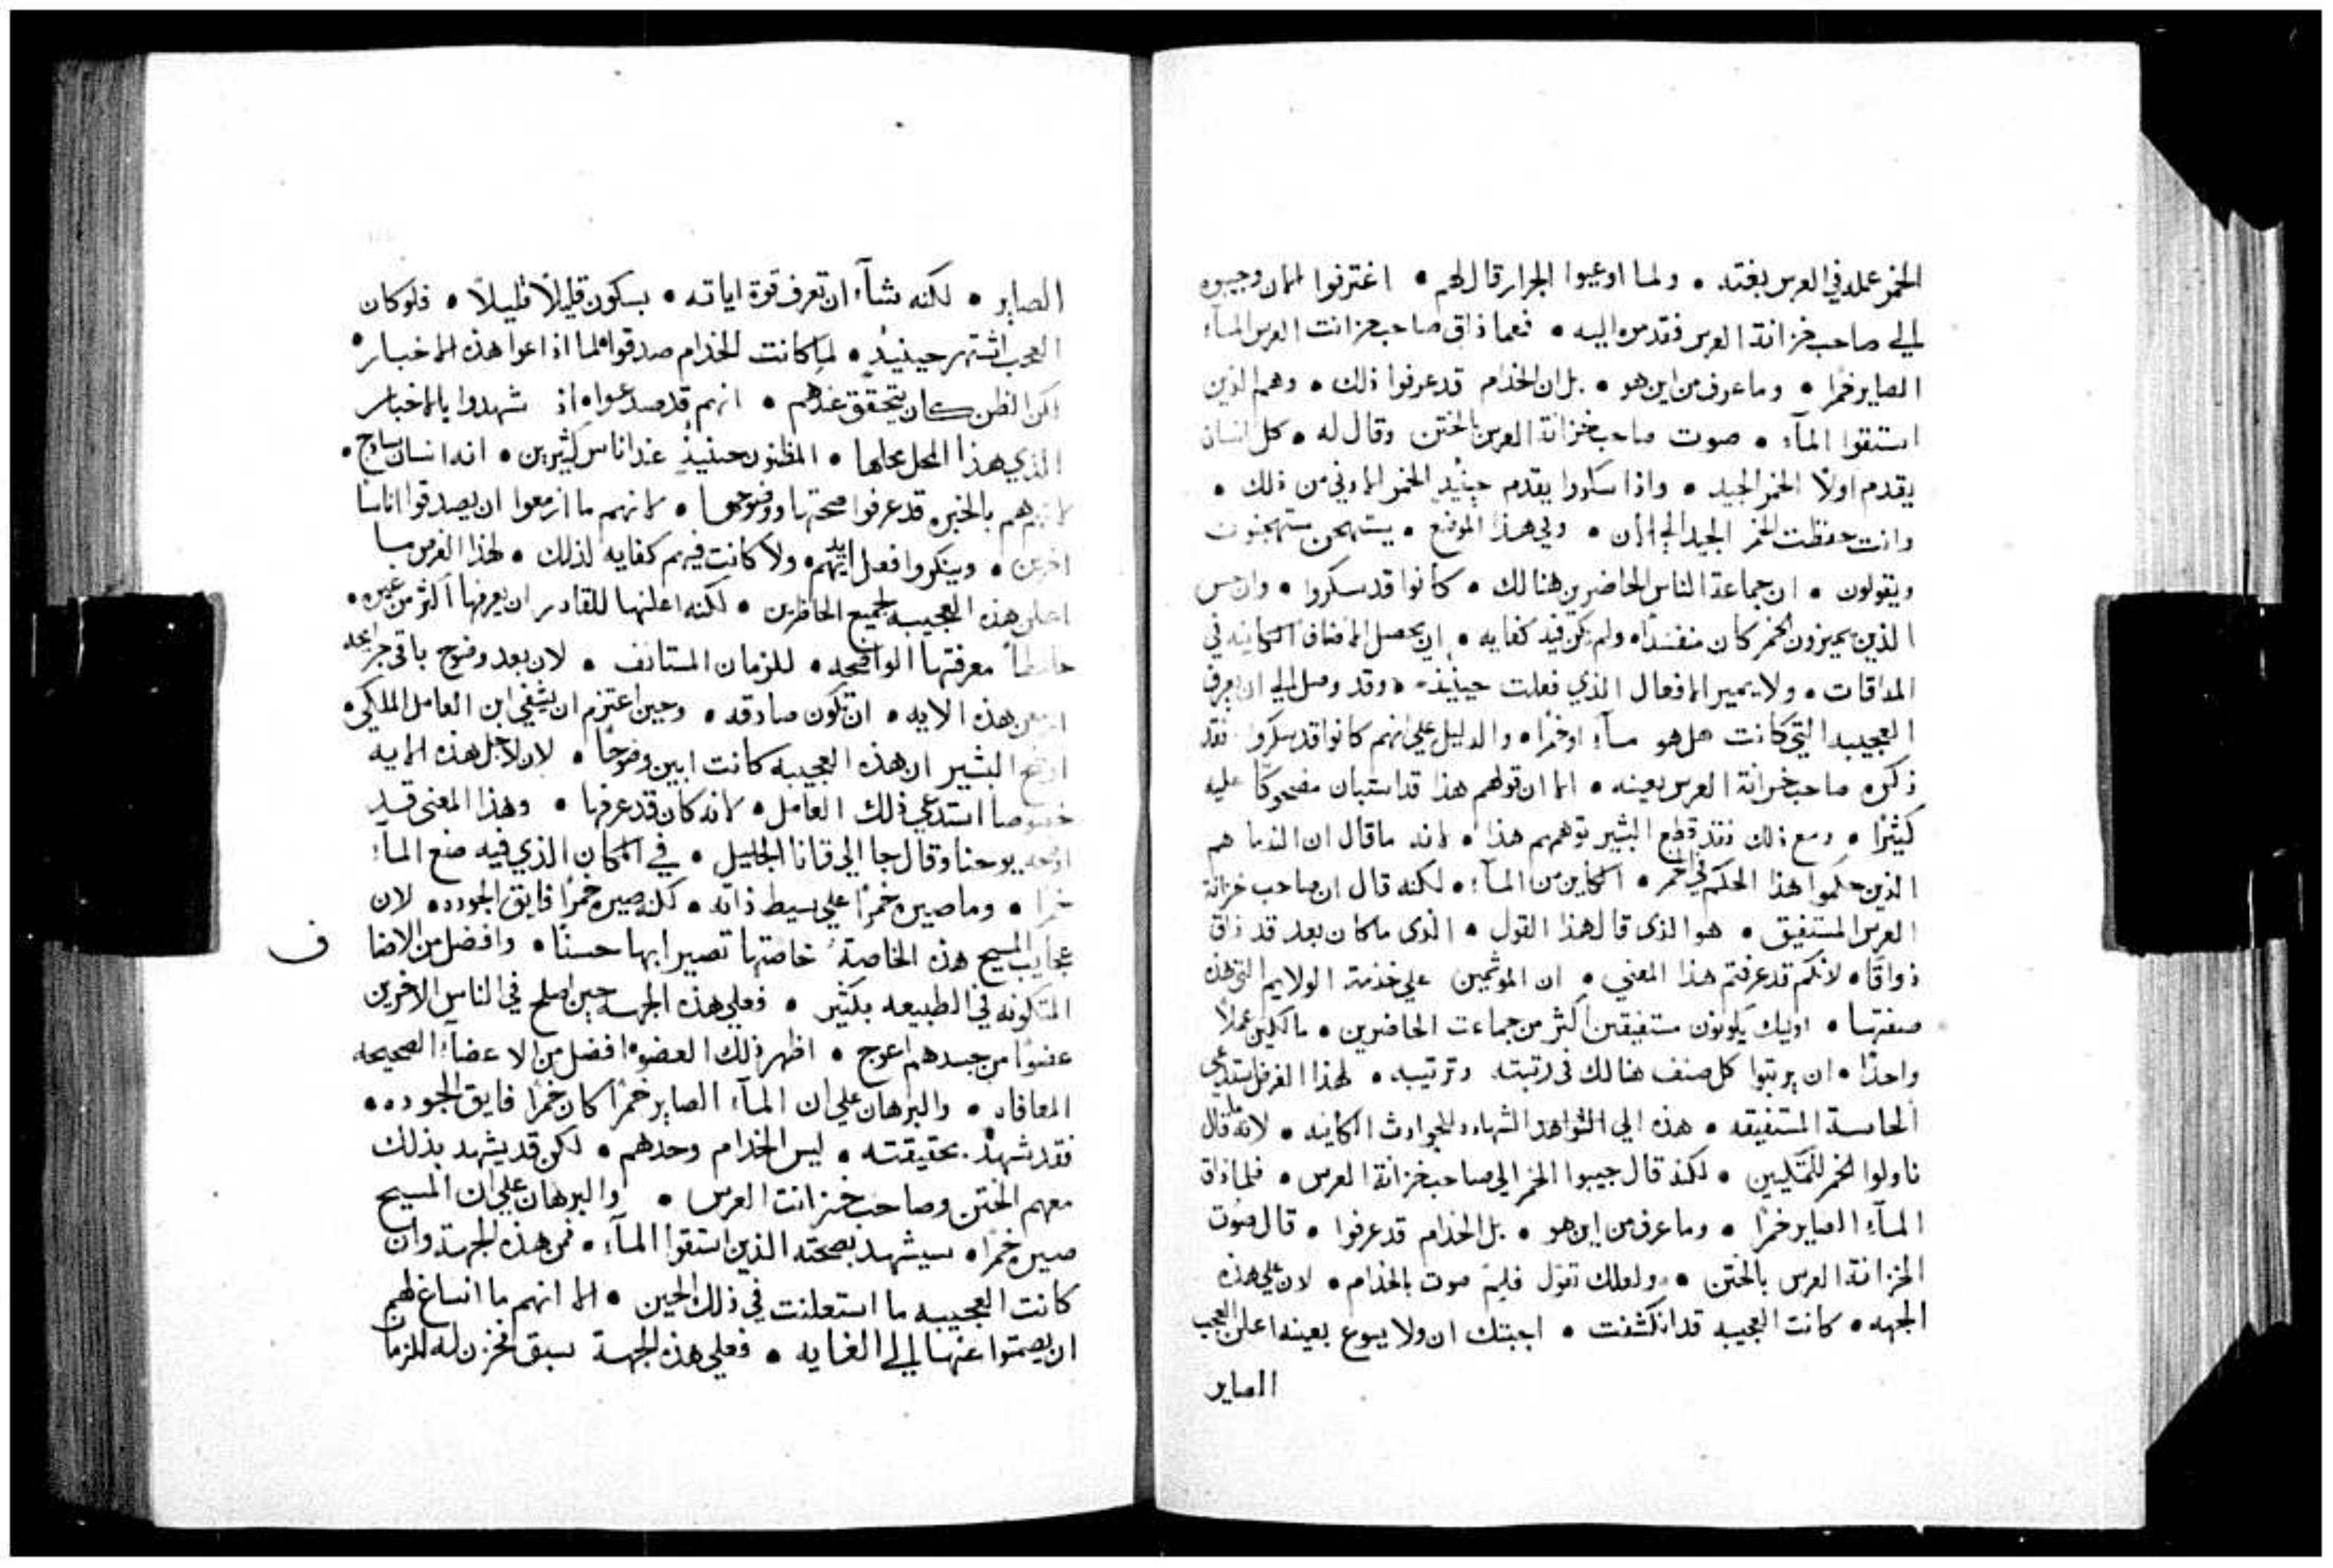 الخمر عمله في العرس بغته • ولما اوعيوا الجرار قال لهم • اغترفوا الان وجيبوه
الي صاحب خزانة العرس فقدموه اليه • فعما ذاق صاحب خزانت العرس المآء
الصاير خمرًا • وما عرف من اين هو • بل ان الخدام قد عرفوا ذلك • وهم الذين
استقوا المآء • صوت صاحب خزانة العرس بالختن وقال له • كل انسان
يقدم اولًا الخمر الجيد • واذا سكروا يقدم حينيدٍ الخمر الادني من ذلك •
وانت حفظت الخمر الجيد الي الان • وفي هذا الموضع • يستهجن مستهجنون
ويقولون • ان جماعة الناس الحاضرين هنالك • كانوا قد سكروا • وان حس
الذين يميزون الخمر كان منفسدًا • ولم يكن فيه كفايه • ان يحصل الاضاف الكاينه في
المداقات • ولا يميز الافعال الذي فعلت حينيذ • وقد وصل الي ان يعرف
العجيبه التي كانت هل هو مآء او خمرًا • والدليل علي انهم كانوا قد سكروا فقد
ذكره صاحب خزانة العرس بعينه • الا ان قولهم هذا قد استبان مضحوكًا عليه
كثيرًا • ومع ذلك فقد قطع البشير توهمهم هذا • لانه ما قال ان الندما هم
الذين حكموا هذا الحكم في الخمر • الكاين من المآء • لكنه قال ان صاحب خزانة
العرس المستفيق • هو الذي قال هذا القول • الذي ما كان بعد قد ذاق
ذواقًا • لانكم قد عرفتم هذا المعني • ان الموتمين علي خدمة الولايم التي هذه
صفتها • اوليك يكونون مستفيقين اكثر من جماعت الحاضرين • مالكين عملًا
واحدًا • ان يرتبوا كل صنف هنالك في رتبته وترتيبه • لهذا الغرض استدعي
الحاسة المستفيقه • هذه الي الشواهد الشهاده للحوادث الكاينه • لانه ما قال
ناولوا الخمر للمتكيين • لكنه قال جيبوا الخمر الي صاحب خزانة العرس • فلما ذاق
المآء الصاير خمرًا • وما عرف من اين هو • بل الخدام قد عرفوا • قال صوت
الخزانة العرس بالختن • ولعلك تقول فلِمَ صوت بالخدام • لان علي هذه
الجهه • كانت العجيبه قد انكشفت • اجبتك ان ولا يسوع بعينه اعلن العجب
الصاير
الصاير • لكنه شآء ان تعرف قوة اياته • بسكون قليلًا قليلًا • فلو كان
العجب اشتهر حينيذٍ • لما كانت الخدام صدقوا لما اذاعوا هذه الاخبار •
لكن الظن كان يتحقق عندهم • انهم قد صدعوا • اذ شهدوا بالاخبار
الذي هذا المحل محلها • المظنون حينيذٍ عند اناس كثيرين • انه انسان ساذج •
لانهم هم بالخبره قد عرفوا صحتها ووضوحها • لانهم ما ازمعوا ان يصدقوا اناسًا
اخرين • وينكروا فعل ايديهم • ولا كانت فيهم كفايه لذلك • لهذا الغرض ما
اعلن هذه العجيبه لجميع الحاضرين • لكنه اعلنها للقادر ان يعرفها اكثر من غيره •
حافظًا معرفتها الواضحه • للزمان المستانف • لان بعد وضوح باقي جرايحه
ازمعن هذه الايه • ان تكون صادقه • وحين اعتزم ان يشفي ابن العامل الملكي •
اوضح البشير ان هذه العجيبه كانت ابين وضوحًا • لان لاجل هذه الايه
خصوصا استدعي ذلك العامل • لانه كان قد عرفها • وهذا المعني قد
اوضحه يوحنا وقال جا الي قانا الجليل • في المكان الذي فيه صنع المآء
خمرًا • وما صيره خمرًا علي بسيط ذاته • لكنه صيره خمرًا فايق الجوده • لان
عجايب المسيح هذه الخاصة خاصتها تصير ابها حسنًا • وافضل من الاضا
ف
المتكونه في الطبيعه بكثير • فعلي هذه الجهه حين اصلح في الناس الاخرين
عضوًا من جسدهم اعوج • اظهر ذلك العضو • افضل من الاعضآء الصحيحه
المعافاه • والبرهان علي ان المآء الصاير خمرًا كان خمرًا فايق الجوده •
فقد شهد بحقيقته • ليس الخدام وحدهم • لكن قد يشهد بذلك
معهم الختن وصاحب خزانت العرس • والبرهان علي ان المسيح
صيره خمرًا • سيشهد بصحته الذين استقوا المآء • فمن هذه الجهة وان
كانت العجيبه ما استعلنت في ذلك الحين • الا انهم ما انساغ لهم
ان يصمتوا عنها الي الغايه • فعلي هذه الجهة سبق فخزن له للزمان